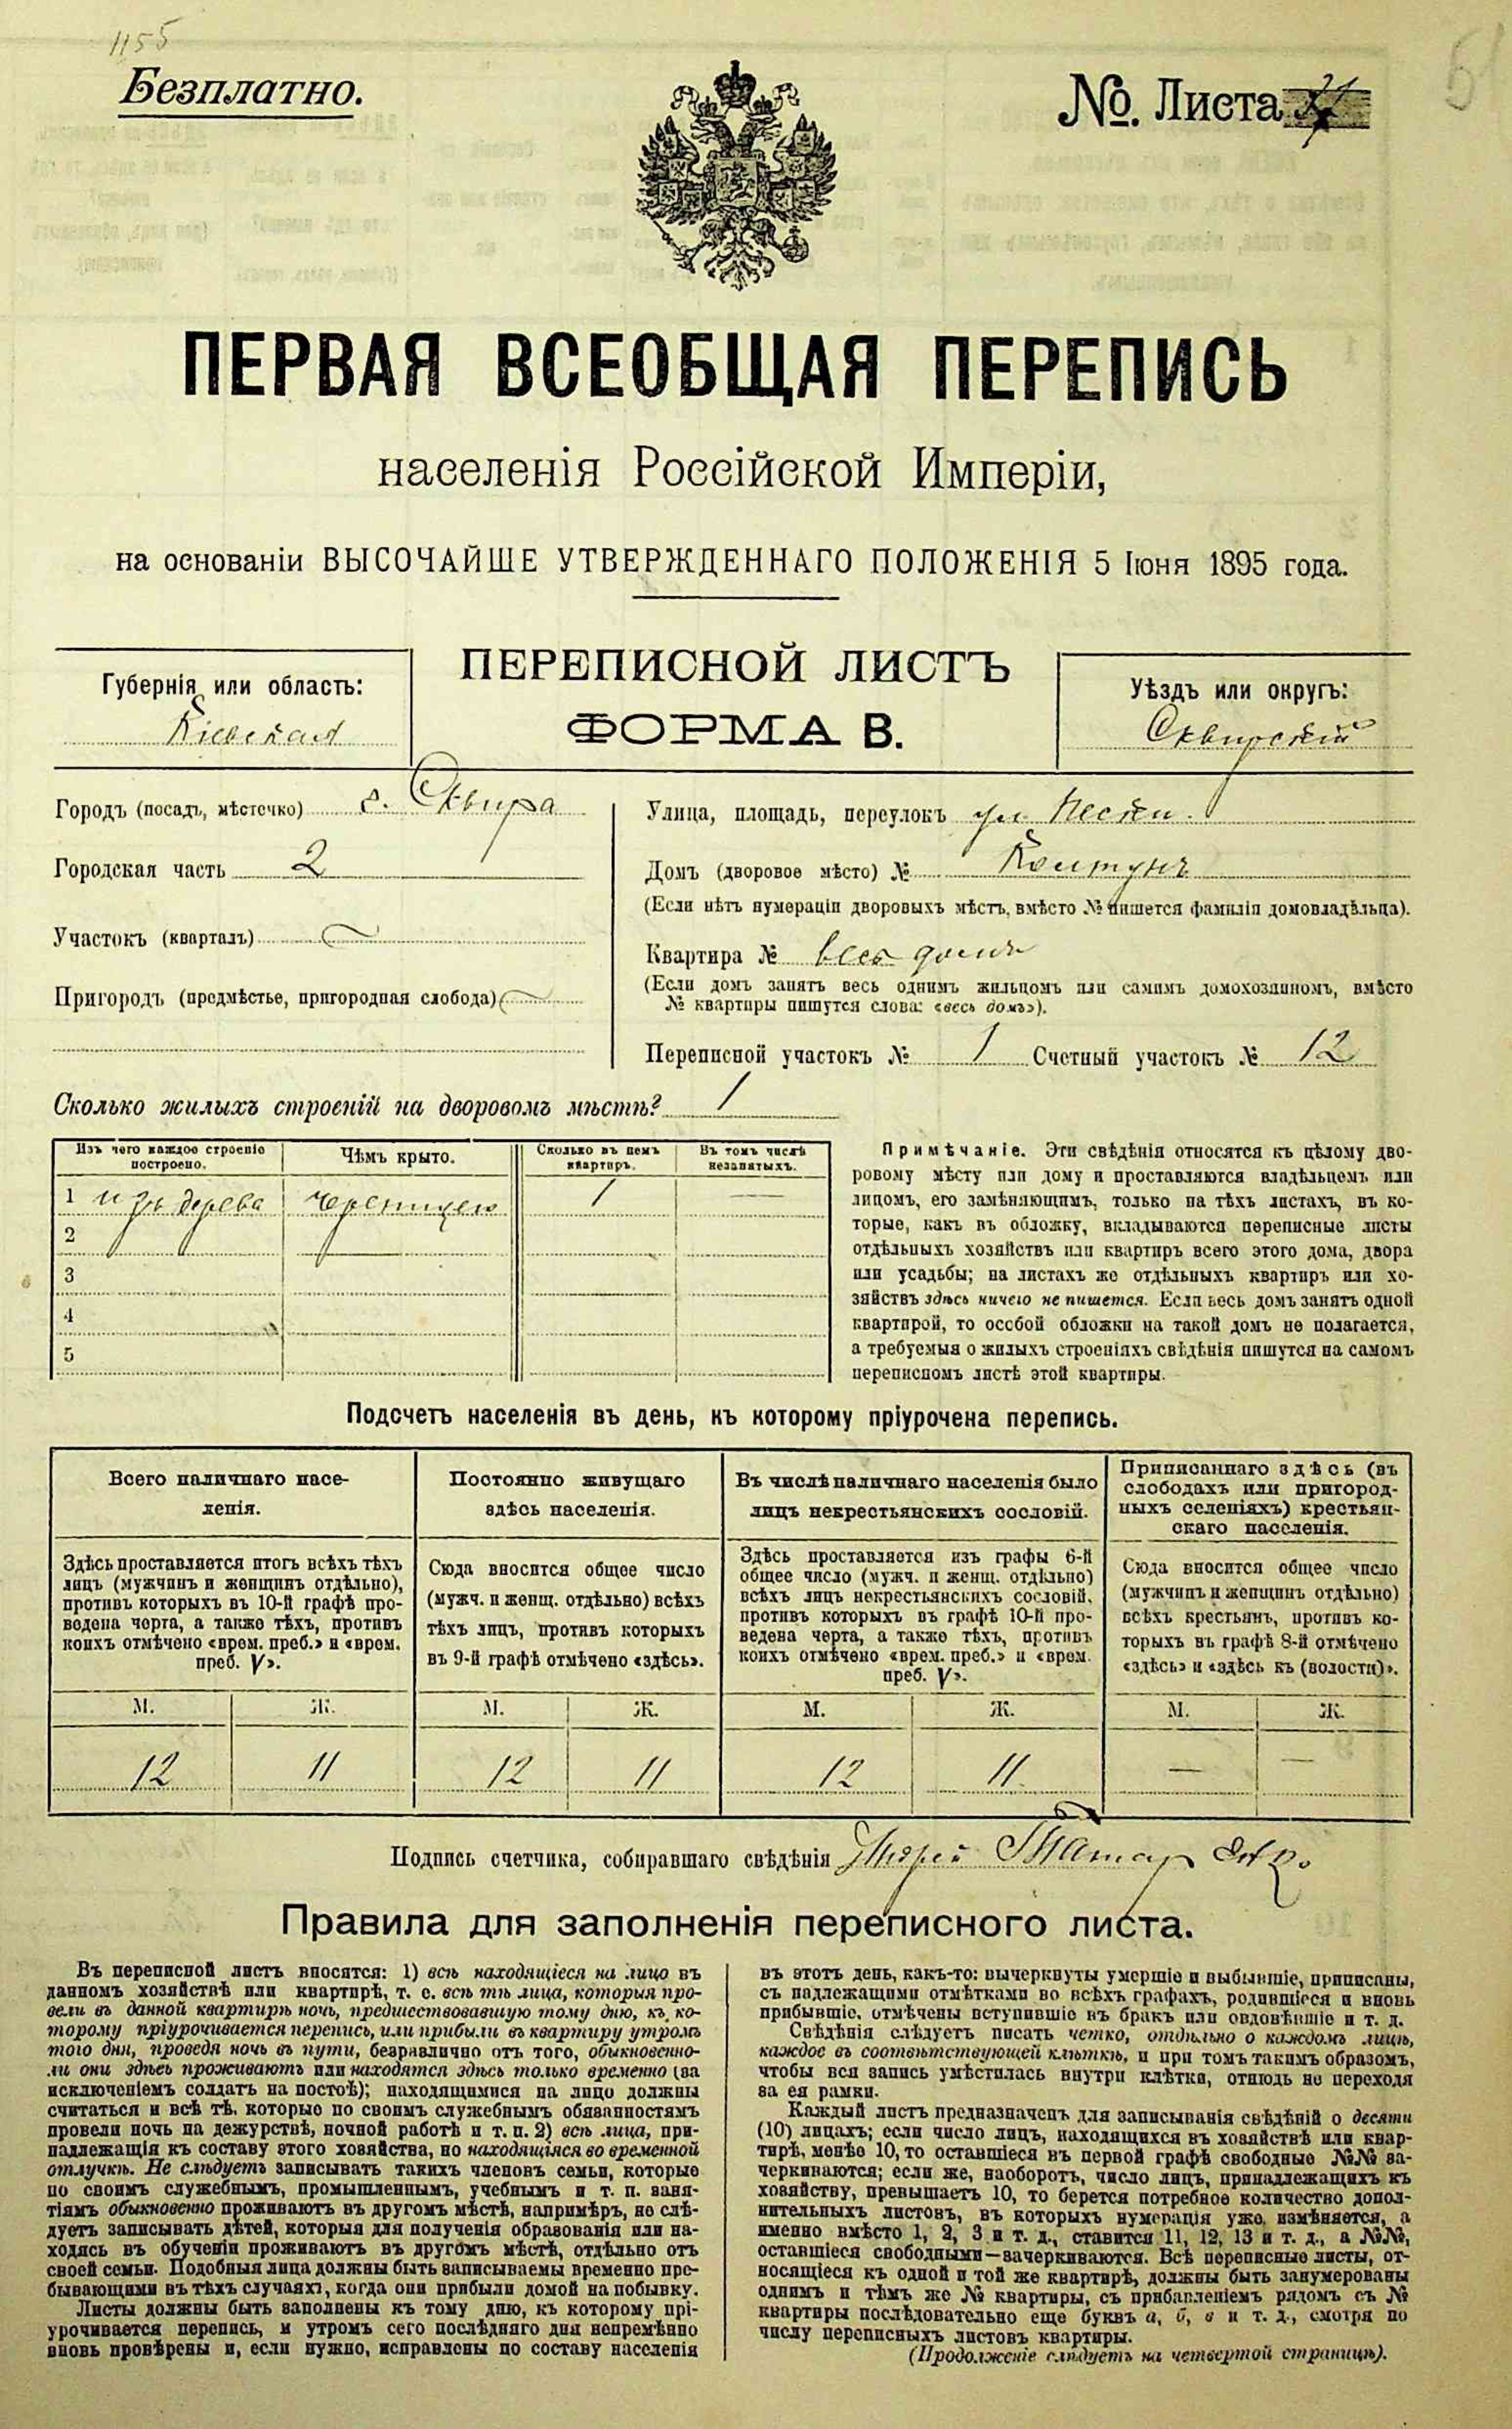 1155
Безплатно.
№. Листа
ПЕРВАЯ ВСЕОБЩАЯ ПЕРЕПИСЬ
населенія Россійской Имперіи,
на основаніи ВЫСОЧАЙШЕ УТВЕРЖДЕННАГО ПОЛОЖЕНІЯ 5 Іюня 1895 года.
Губернія или область:
Кіевская
ПЕРЕПИСНОЙ ЛИСТЪ
ФОРМА В.
Уѣздъ или округъ:
Сквирскій
Городъ (посадъ, мѣстечко) г. Сквира
Городская часть 2
Участокъ (кварталъ) —
Пригородъ (предмѣстье, пригородная слобода) —
Улица, площадь, переулокъ ул. Пески.
Домъ (дворовое мѣсто) №
(Если нѣтъ нумераціи дворовыхъ мѣстъ, вмѣсто № пишется фамилія домовладѣльца).
Квартира № весь домъ
(Если домъ занятъ весь однимъ жильцомъ или самимъ домохозяиномъ, вмѣсто
№ квартиры пишутся слова: «весь домъ»).
Переписной участокъ № 1 Счетный участокъ № 12
Сколько жилыхъ строеній на дворовомъ мѣстѣ? 1
Изъ чего каждое строеніе построено.
Чѣмъ крыто.
Сколько въ немъ квартиръ.
Въ томъ числѣ незанятыхъ.
1 изъ дерева черепицею 1 —
2
3
4
5
Примѣчаніе. Эти свѣдѣнія относятся къ цѣлому дво-
ровому мѣсту или дому и проставляются владѣльцемъ или
лицомъ, его замѣняющимъ, только на тѣхъ листахъ, въ ко-
торые, какъ въ обложку, вкладываются переписные листы
отдѣльныхъ хозяйствъ или квартиръ всего этого дома, двора
или усадьбы; на листахъ же отдѣльныхъ квартиръ или хо-
зяйствъ здѣсь ничего не пишется. Если весь домъ занятъ одной
квартирой, то особой обложки на такой домъ не полагается,
а требуемыя о жилыхъ строеніяхъ свѣдѣнія пишутся на самомъ
переписномъ листѣ этой квартиры.
Подсчетъ населенія въ день, къ которому пріурочена перепись.
Всего наличнаго насе-
ленія.
Здѣсь проставляется итогъ всѣхъ тѣхъ
лицъ (мужчинъ и женщинъ отдѣльно),
противъ которыхъ въ 10-й графѣ про-
ведена черта, а также тѣхъ, противъ
коихъ отмѣчено «врем. преб.» и «врем.
преб. V».
М. Ж.
12 11
Постоянно живущаго
здѣсь населенія.
Сюда вносится общее число
(мужч. и женщ. отдѣльно) всѣхъ
тѣхъ лицъ, противъ которыхъ
въ 9-й графѣ отмѣчено «здѣсь».
М. Ж.
12 11
Въ числѣ наличнаго населенія было
лицъ некрестьянскихъ сословій.
Здѣсь проставляется изъ графы 6-й
общее число (мужч. и женщ. отдѣльно)
всѣхъ лицъ некрестьянскихъ сословій,
противъ которыхъ въ графѣ 10-й про-
ведена черта, а также тѣхъ, противъ
коихъ отмѣчено «врем. преб.» и «врем.
преб. V».
М. Ж.
12 11
Приписаннаго здѣсь (въ
слободахъ или пригород-
ныхъ селеніяхъ) крестьян-
скаго населенія.
Сюда вносится общее число
(мужчинъ и женщинъ отдѣльно)
всѣхъ крестьянъ, противъ ко-
торыхъ въ графѣ 8-й отмѣчено
«здѣсь» и «здѣсь къ (волости)».
М. Ж.
— —
Подпись счетчика, собиравшаго свѣдѣнія
Правила для заполненія переписного листа.
Въ переписной листъ вносятся: 1) всѣ находящіеся на лицо въ
данномъ хозяйствѣ или квартирѣ, т. е. всѣ тѣ лица, которыя про-
вели въ данной квартирѣ ночь, предшествовавшую тому дню, къ ко-
торому пріурочивается перепись, или прибыли въ квартиру утромъ
того дня, проведя ночь въ пути, безразлично отъ того, обыкновенно-
ли они здѣсь проживаютъ или находятся здѣсь только временно (за
исключеніемъ солдатъ на постоѣ); находящимися на лицо должны
считаться и всѣ тѣ, которые по своимъ служебнымъ обязанностямъ
провели ночь на дежурствѣ, ночной работѣ и т. п. 2) всѣ лица, при-
надлежащія къ составу этого хозяйства, но находящіяся во временной
отлучкѣ. Не слѣдуетъ записывать такихъ членовъ семьи, которые
по своимъ служебнымъ, промышленнымъ, учебнымъ и т. п. заня-
тіямъ обыкновенно проживаютъ въ другомъ мѣстѣ, напримѣръ, не слѣ-
дуетъ записывать дѣтей, которыя для полученія образованія или на-
ходясь въ обученіи проживаютъ въ другомъ мѣстѣ, отдѣльно отъ
своей семьи. Подобныя лица должны быть записываемы временно пре-
бывающими въ тѣхъ случаяхъ, когда они прибыли домой на побывку.
Листы должны быть заполнены къ тому дню, къ которому прі-
урочивается перепись, и утромъ сего послѣдняго дня непремѣнно
вновь провѣрены и, если нужно, исправлены по составу населенія
въ этотъ день, какъ-то: вычеркнуты умершіе и выбывшіе, приписаны,
съ надлежащими отмѣтками во всѣхъ графахъ, родившіеся и вновь
прибывшіе, отмѣчены вступившіе въ бракъ или овдовѣвшіе и т. д.
Свѣдѣнія слѣдуетъ писать четко, отдѣльно о каждомъ лицѣ,
каждое въ соотвѣтствующей клѣткѣ, и при томъ такимъ образомъ,
чтобы вся запись умѣстилась внутри клѣтки, отнюдь не переходя
за ея рамки.
Каждый листъ предназначенъ для записыванія свѣдѣній о десяти
(10) лицахъ; если число лицъ, находящихся въ хозяйствѣ или квар-
тирѣ, менѣе 10, то оставшіеся въ первой графѣ свободные №№ за-
черкиваются; если же, наоборотъ, число лицъ, принадлежащихъ къ
хозяйству, превышаетъ 10, то берется потребное количество допол-
нительныхъ листовъ, въ которыхъ нумерація уже измѣняется, а
именно вмѣсто 1, 2, 3 и т. д., ставится 11, 12, 13 и т. д., а №№,
оставшіеся свободными—зачеркиваются. Всѣ переписные листы, от-
носящіеся къ одной и той же квартирѣ, должны быть занумерованы
однимъ и тѣмъ же № квартиры, съ прибавленіемъ рядомъ съ №
квартиры послѣдовательно еще буквъ а, б, в и т. д., смотря по
числу переписныхъ листовъ квартиры.
(Продолженіе слѣдуетъ на четвертой страницѣ).